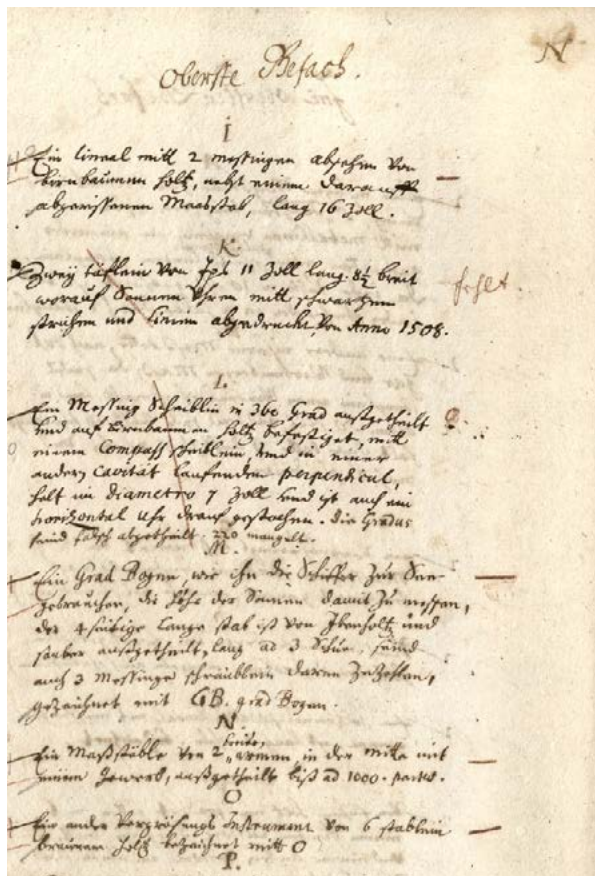 Oberste Besach.
N
I
Ein Lineal mitt 2 messingen absehen von
birnbaumen holtz, nebst einem darauff
abgerissenen Maasstab, lang 16 Zoll.
K.
Zwey täfflein von Ips 11 Zoll lang. 8½ breit
worauf Sonnen Uhren mitt schwartzen
strichen und Linien abgedruckt, von Anno 1508.
fehlt.
L.
Ein Messing Scheiblin in 360 Grad aussgetheilt
und auf birnbaumen holtz befestiget, mitt
einem Compass scheiblein, und in einer
andern Cavität lauffenden perpendicul,
helt im Diametro 7 Zoll und ist auch ein
horizontal Uhr drauf gestochen. die Gradus
seind falsch abgetheilt. 220 mangelt.
M.
Ein Grad Bogen, wie ihn die Schiffer zur See
gebrauchen, die höhe der Sonnen damit zu messen,
der 4 seitige lange stab ist von holtz und
sauber aussgetheilt, lang ad 3 Schue, seind
auch 3 Messinge schräublein daren
gezeichnet mit GB. grad Bogen.
N
Ein Maßstäble von 2 armen, in der mitte mit
breite,
einem gewerb, aussgetheilt biß ad 1000. partes.
O
Ein ander Instrument von 6 stäblein
braunem holtz bezeichnet mitt O
P.